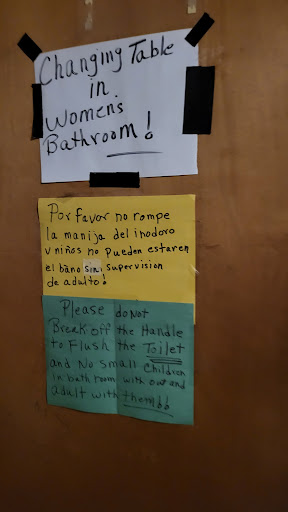 Changing Table
in
Womens
Bathroom!
Por favor no rompe
la manija del inodoro
y niños no pueden estaren
el baño sin supervision
de adulto!
Please do Not
Break off the Handle
to Flush the Toilet
and No Small Children
in bathroom with out and
adult with themb!